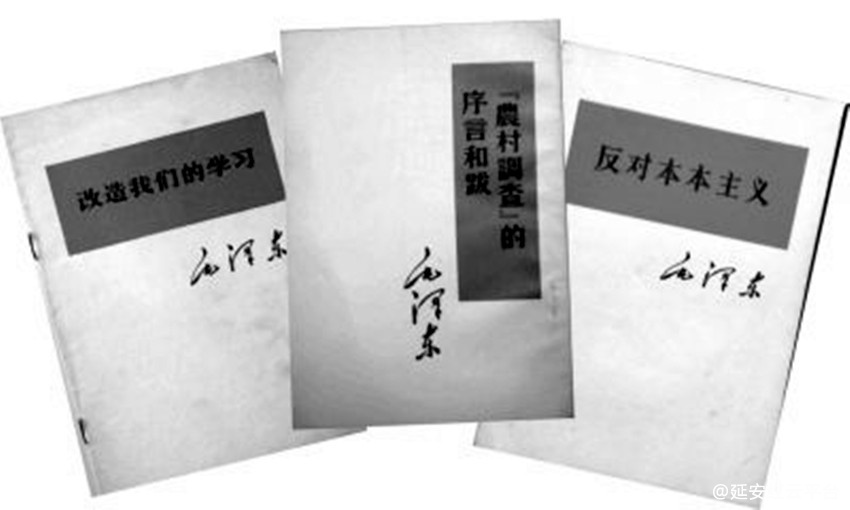 改造我们的学习
毛泽东
『農村調查』的
序言和跋
毛泽东
反对本本主义
毛泽东
@延安